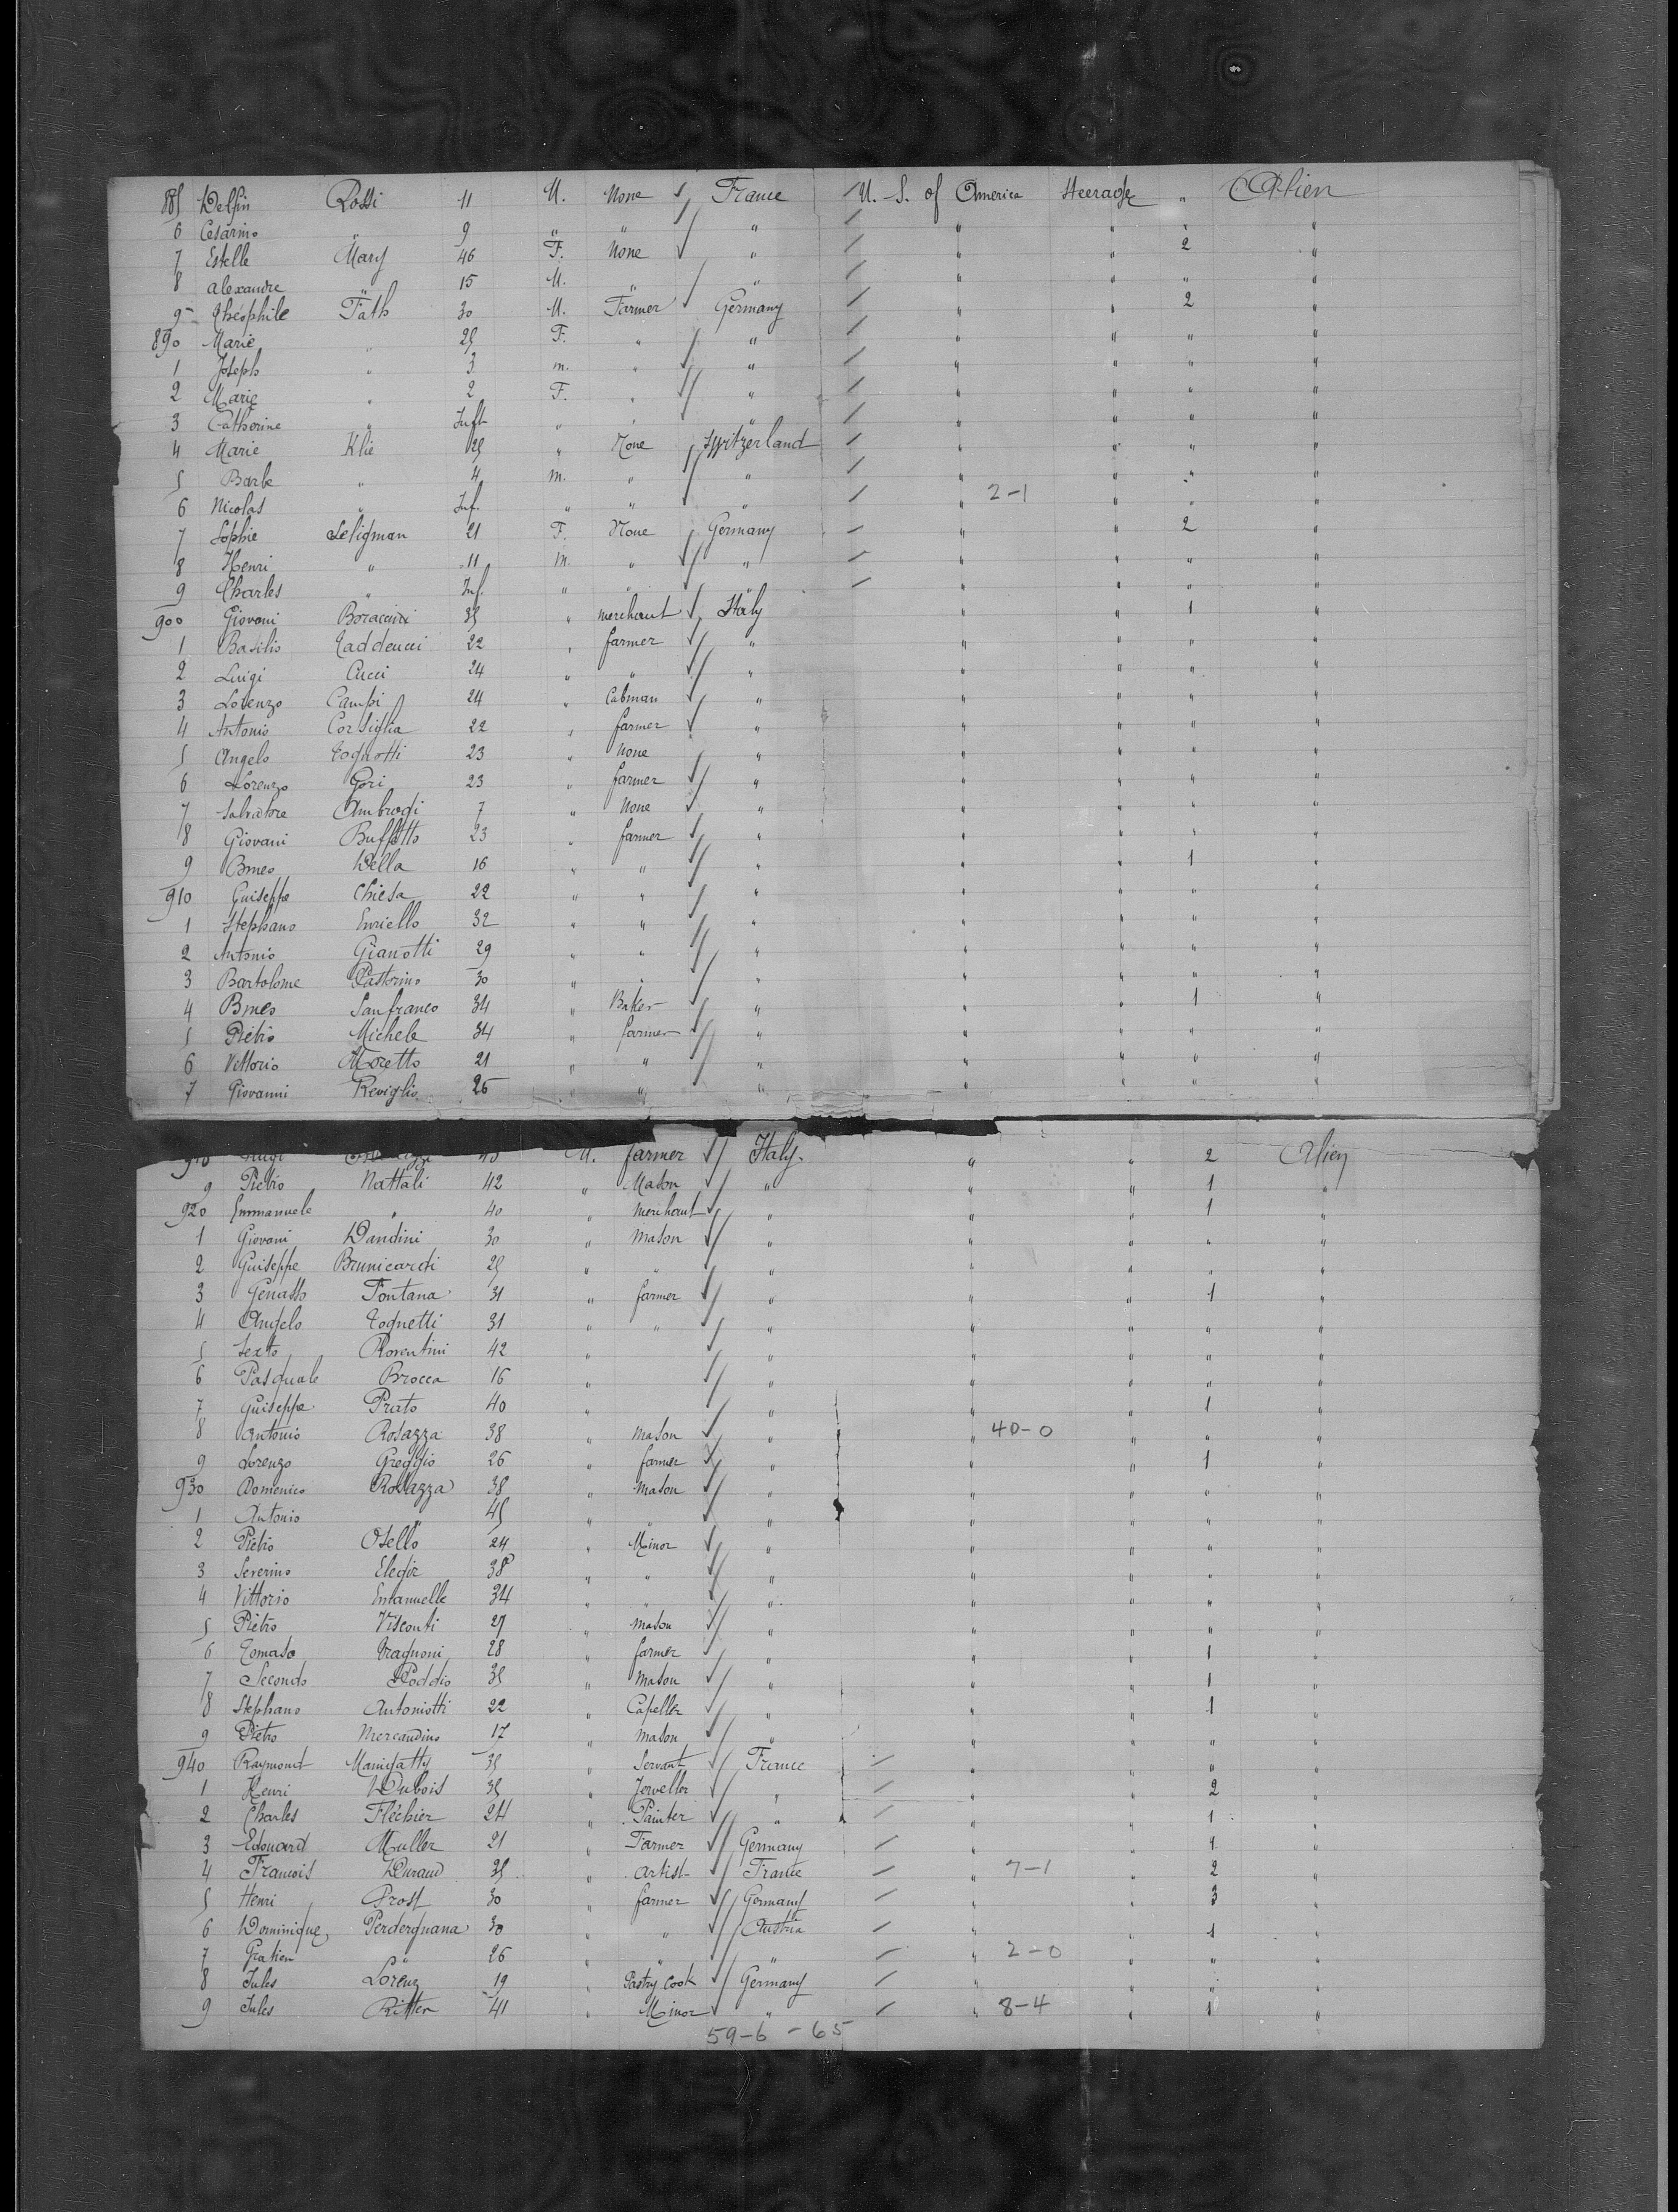 885 Delfin Rossi 11 M. None France U. S. of America Steerage " Alien
6 Cesarino " 9 " " " " " " "
7 Estelle Mary 46 F. None " " " 2 "
8 Alexandre " 15 M. " " " " " "
9 Théophile Fath 30 M. Farmer Germany " " 2 "
890 Marie " 25 F. " " " " " "
1 Joseph " 3 m. " " " " " "
2 Marie " 2 F. " " " " " "
3 Catherine " Inft " " " " " " "
4 Marie Klie 25 " None Switzerland " " " "
5 Barbe " 4 m. " " " " " "
6 Nicolas " Inf. " " " " 2-1 " " "
7 Sophie Seligman 21 F. None Germany " " 2 "
8 Henri " 11 m. " " " " " "
9 Charles " Inf. " " " " " " "
900 Giovani 35 " merchant Italy " " 1 "
1 Basilio Taddeucci 22 " farmer " " " " "
2 Luigi Cucci 24 " " " " " " "
3 Lorenzo Campi 24 " Cabman " " " " "
4 Antonio Corsiglia 22 " farmer " " " " "
5 Angelo Tognotti 23 " None " " " " "
6 Lorenzo Gori 23 " farmer " " " " "
7 Salvatore Ambrogi 7 " None " " " " "
8 Giovani Buffetto 23 " farmer " " " " "
9 Bmeo Della 16 " " " " " 1 "
910 Guiseppe Chiesa 22 " " " " " " "
1 Stephano Enriello 32 " " " " " " "
2 Antonio Gianotti 29 " " " " " " "
3 Bartolome Pastorino 30 " " " " " " "
4 Bmeo Sanfranco 34 " Baker " " " 1 "
5 Pietro Michele 34 " farmer " " " " "
6 Vittorio Moretto 21 " " " " " " "
7 Giovanni Reviglio 26 " " " " " " "
M. farmer Italy. " " 2 Alien
9 Pietro Nattali 42 " Mason " " " 1 "
920 Emmanuele " 40 " merchant " " " 1 "
1 Giovani Dandini 30 " Mason " " " " "
2 Guiseppe Brunicardi 25 " " " " " " "
3 Fontana 31 " farmer " " " 1 "
4 Angelo Tognetti 31 " " " " " " "
5 Sexto Fiorentini 42 " " " " " "
6 Pasquale Brocca 16 " " " " " "
7 Guiseppe Prato 40 " " " " 1 "
8 Antonio Rosazza 38 " Mason " " 40-0 " " "
9 Lorenzo Greggio 26 " farmer " " " 1 "
930 Domenico Rosazza 38 " Mason " " " " "
1 Antonio " 45 " " " " " " "
2 Pietro Osello 24 " Minor " " " " "
3 Severino 38 " " " " " " "
4 Vittorio Emanuelle 34 " " " " " " "
5 Pietro Visconti 27 " Mason " " " " "
6 Tomaso Tragnoni 28 " farmer " " " 1 "
7 Secondo Poddio 35 " Mason " " " 1 "
8 Stephano Antoniotti 22 " Capeller " " " 1 "
9 Pietro Mercandino 17 " Mason " " " " "
940 Raymond 35 " Servant France " " " "
1 Henri Dubois 35 " Jeweller " " " 2 "
2 Charles Fléchier 24 " Painter " " " 1 "
3 Edouard Muller 21 " Farmer Germany " " 1 "
4 Francois Durand 35 " Artist France " 7-1 " 2 "
5 Henri Prost 30 " farmer Germany " " 3 "
6 Dominique Perderguana 30 " " Austria " " 1 "
7 Gratien " 26 " " " " 2-0 " " "
8 Jules Lorenz 19 " Pastry Cook Germany " " " "
9 Jules Ritter 41 " Minor " " 8-4 " 1 "
59-6 - 65